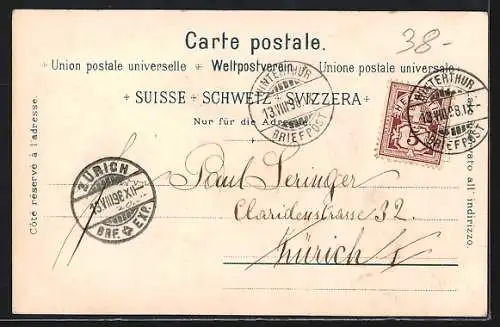 Carte postale.
38-
Union postale universelle Weltpostverein Unione postale universale
SUISSE SCHWEIZ SVIZZERA
Nur für die Adresse
WINTERTHUR
BRIEFPOST
WINTERTHUR
BRIEFPOST
5
ZÜRICH
BRF. EXP.
Côté réservé à l'adresse.
all' indirizzo.
Paul Seringer
Claridenstrasse 32.
Zürich I